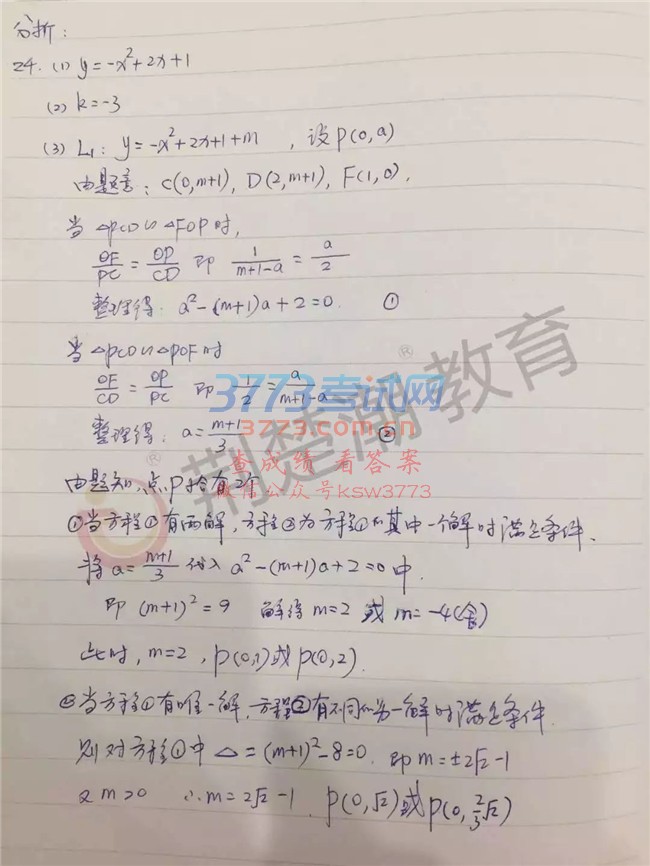 分析：
24. (1) y=-x²+2x+1
(2) k=-3
(3) L₁: y=-x²+2x+1+m ，设P(0,a)
由题意：C(0,m+1), D(2,m+1), F(1,0).
当△PCD∽△FOP时,
OF/PC = OP/CD 即 1/(m+1-a) = a/2
整理得: a²-(m+1)a+2=0. ①
当△PCD∽△POF时
OF/CD = OP/PC 即 1/2 = a/(m+1-a)
3773考试网
整理得: a=(m+1)/3 ②
3773.com.cn
查成绩 看答案
微信公众号ksw3773
荆楚潮教育
由题知, 点P恰有2个
①当方程①有两解, 方程②为方程①的其中一个解时满足条件.
将a=(m+1)/3代入a²-(m+1)a+2=0中.
即 (m+1)²=9 解得m=2 或 m=-4(舍)
此时, m=2, P(0,1)或P(0,2).
②当方程①有唯一解, 方程②有不同的另一解时满足条件.
则对方程①中 △=(m+1)²-8=0. 即m=±2√2-1
又m>0 ∴m=2√2-1. P(0,√2)或P(0,2/3√2)